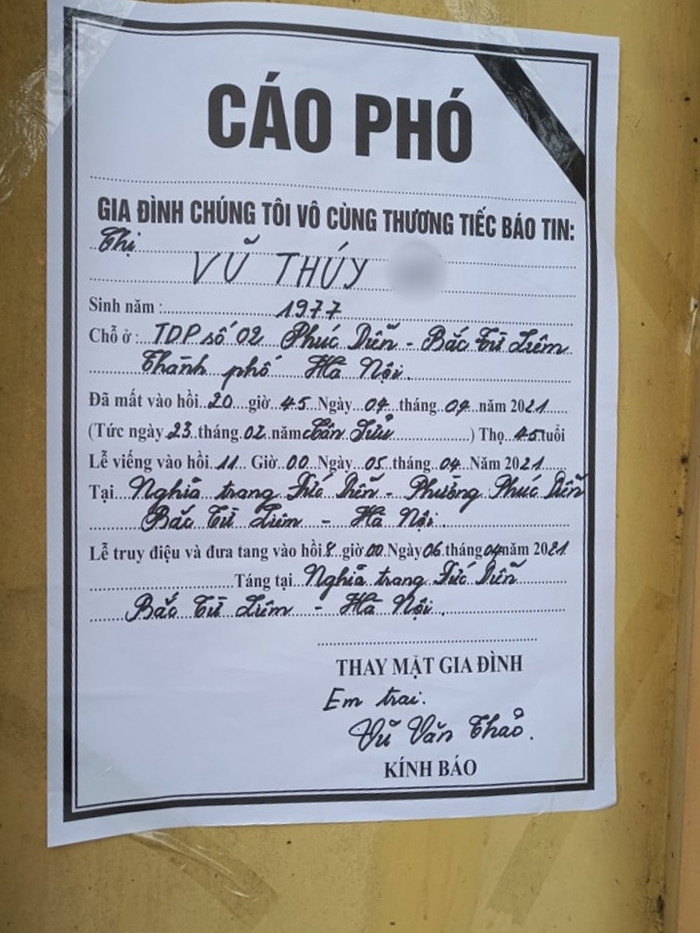 CÁO PHÓ
GIA ĐÌNH CHÚNG TÔI VÔ CÙNG THƯƠNG TIẾC BÁO TIN:
Chị
VŨ THÚY
Sinh năm : 1977
Chỗ ở : TDP số 02 Phúc Diễn - Bắc Từ Liêm
Thành phố Hà Nội.
Đã mất vào hồi 20 giờ 45 Ngày 04 tháng 04 năm 2021
(Tức ngày 23 tháng 02 năm Tân Sửu ) Thọ 45 tuổi
Lễ viếng vào hồi 11 Giờ 00 Ngày 05 tháng 04 Năm 2021
Tại Nghĩa trang Đức Diễn - Phường Phúc Diễn
Bắc Từ Liêm - Hà Nội.
Lễ truy điệu và đưa tang vào hồi 8 giờ 00 Ngày 06 tháng 04 năm 2021
Táng tại Nghĩa trang Đức Diễn
Bắc Từ Liêm - Hà Nội.
THAY MẶT GIA ĐÌNH
Em trai.
Vũ Văn Thảo.
KÍNH BÁO